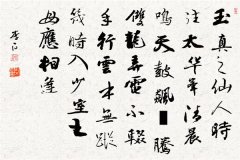 玉真之仙人時
往太華峯清晨
鳴天鼓飆欻騰
雙龍弄電不輟
手行雲本無蹤
幾時入少室王
母應相逢